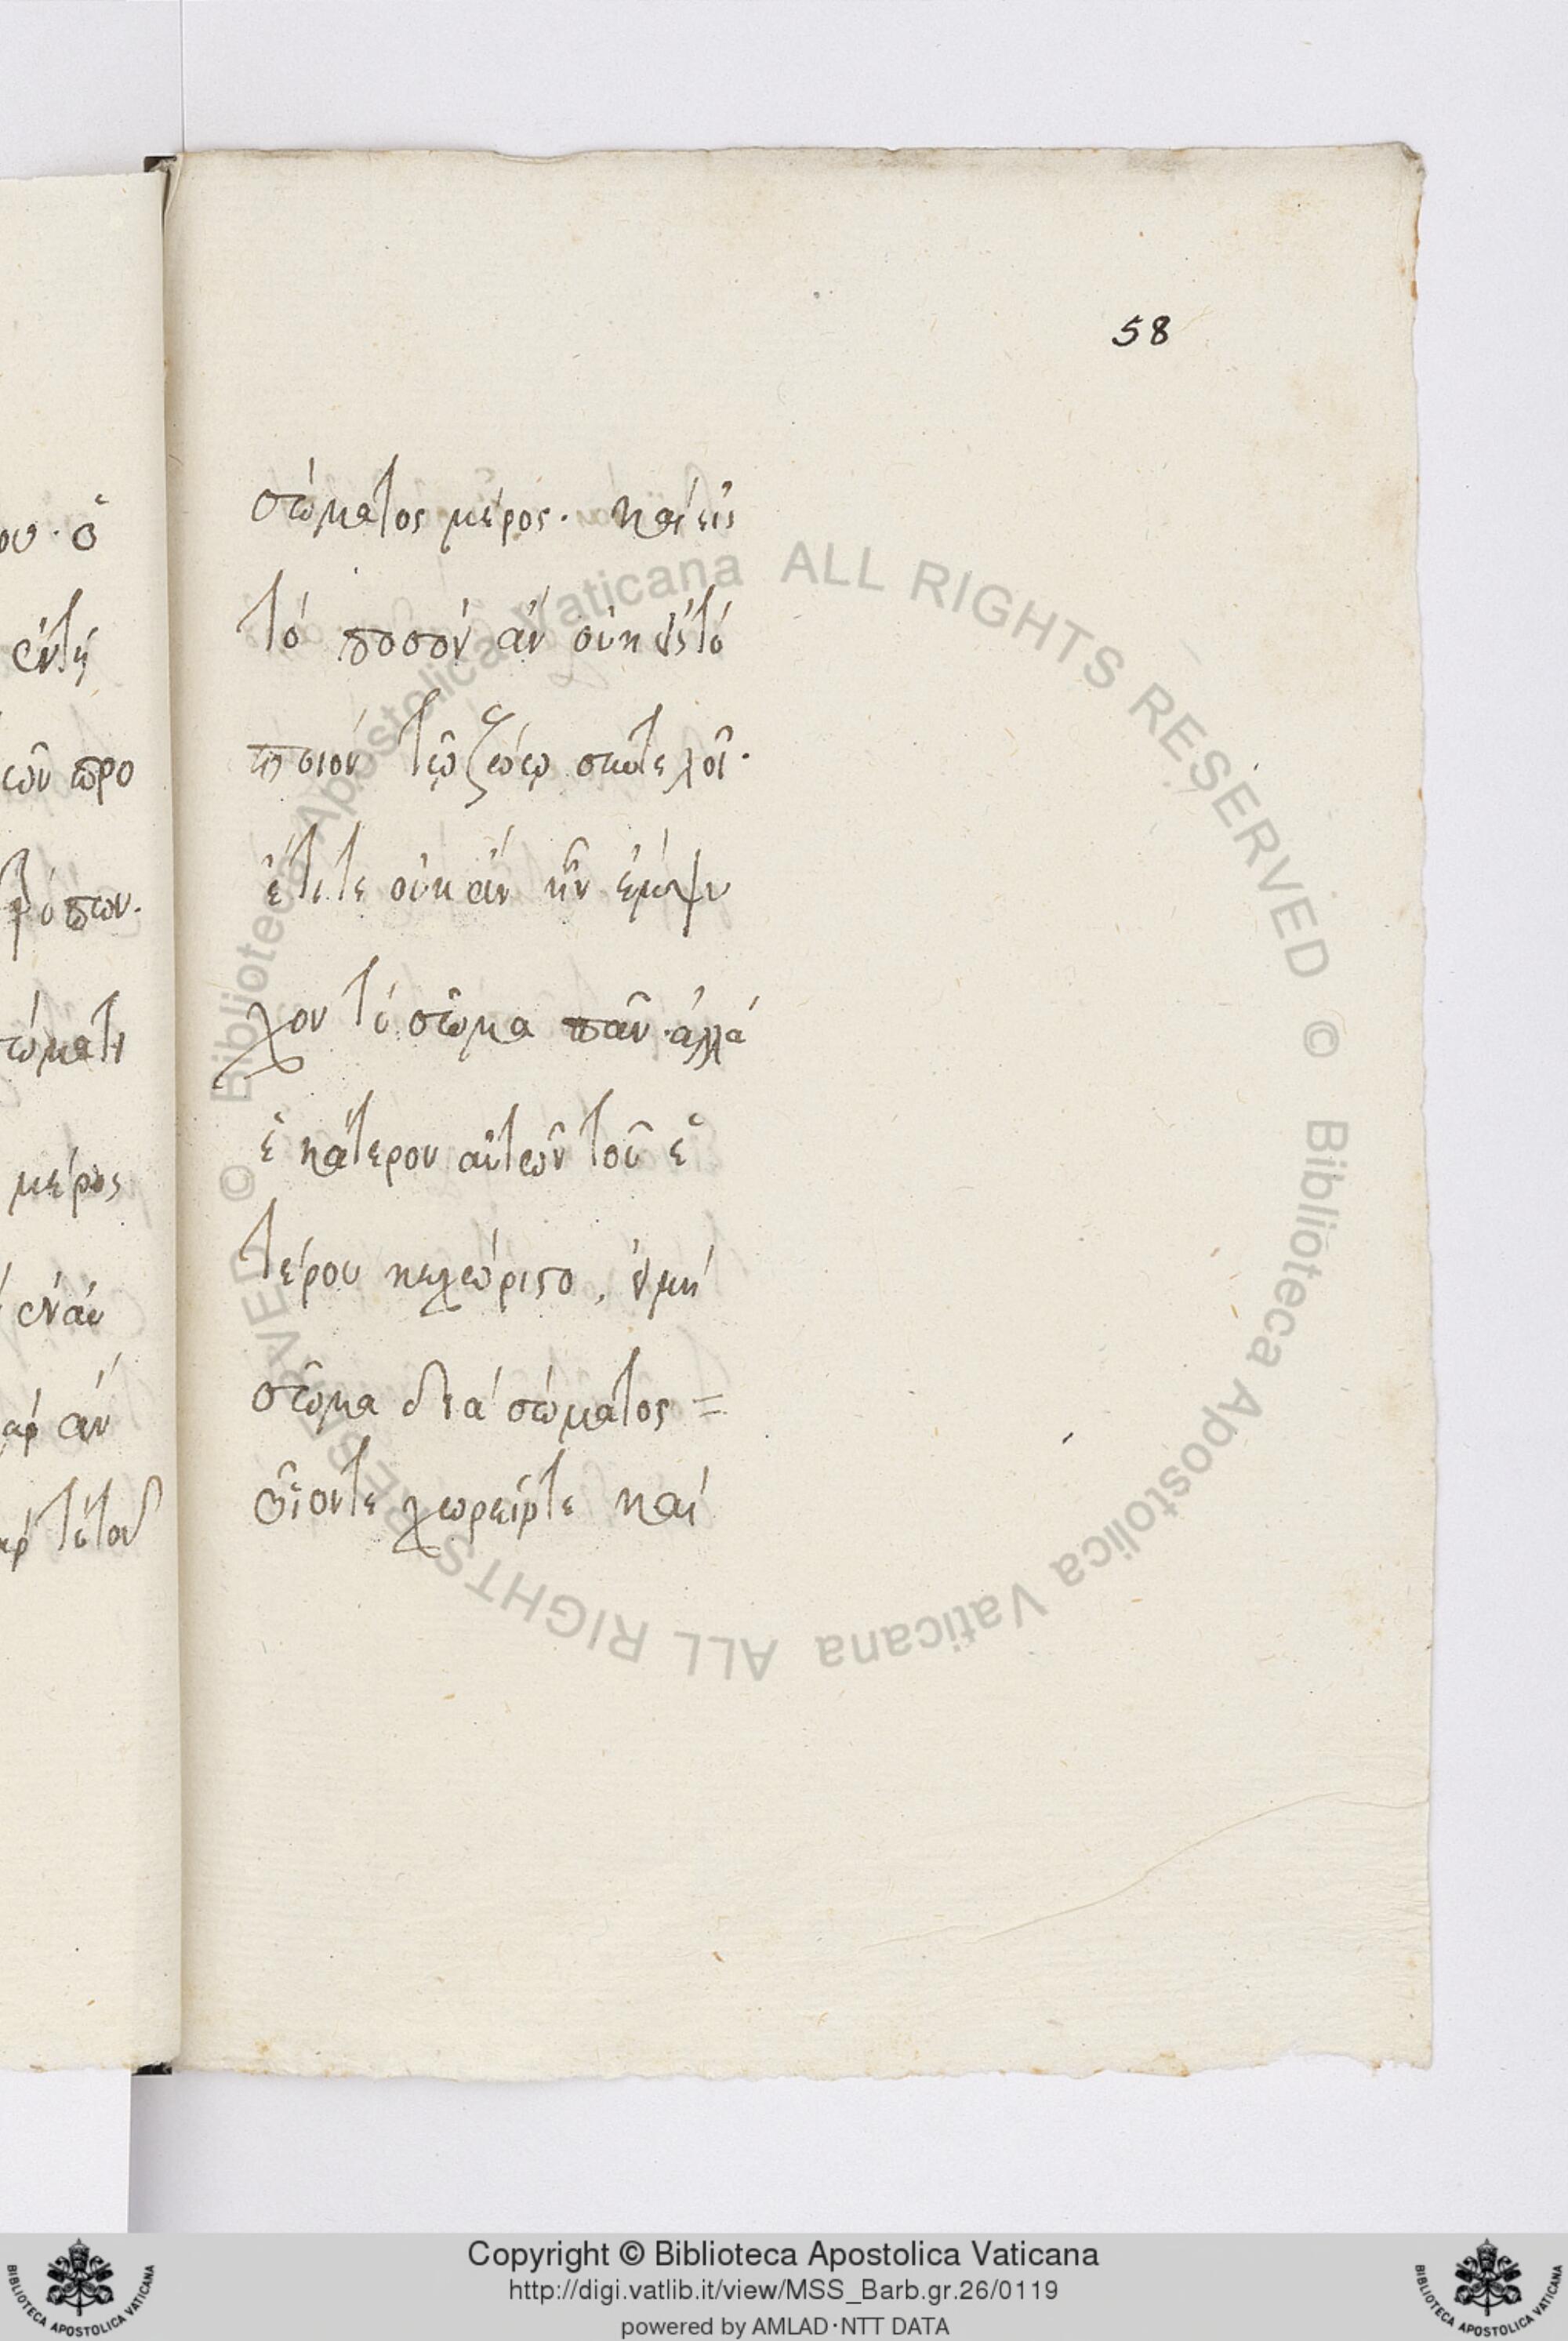 58
σώματος μέρος. καὶ εἰς
τὸ ποσὸν ἂν οὐκ εἰς τὸ
ποιὸν τῷ ζώῳ συντελοῖ.
ἔτι τε οὐκ ἂν ἦν ἔμψυ
χον τὸ σῶμα πᾶν. ἀλλὰ
ἑκάτερον αὐτῶν τοῦ ἑ
τέρου κεχώριστο, εἰ μὴ
σῶμα διὰ σώματος
οἷόντε χωρεῖν τε καὶ
ου. ὁ
ἐν τῇ
ῶν προ
μέρος
ὰρ ἂν
Copyright © Biblioteca Apostolica Vaticana
http://digi.vatlib.it/view/MSS_Barb.gr.26/0119
powered by AMLAD·NTT DATA
© Biblioteca Apostolica Vaticana ALL RIGHTS RESERVED © Biblioteca Apostolica Vaticana ALL RIGHTS RESERVED
BIBLIOTECA APOSTOLICA VATICANA
BIBLIOTECA APOSTOLICA VATICANA